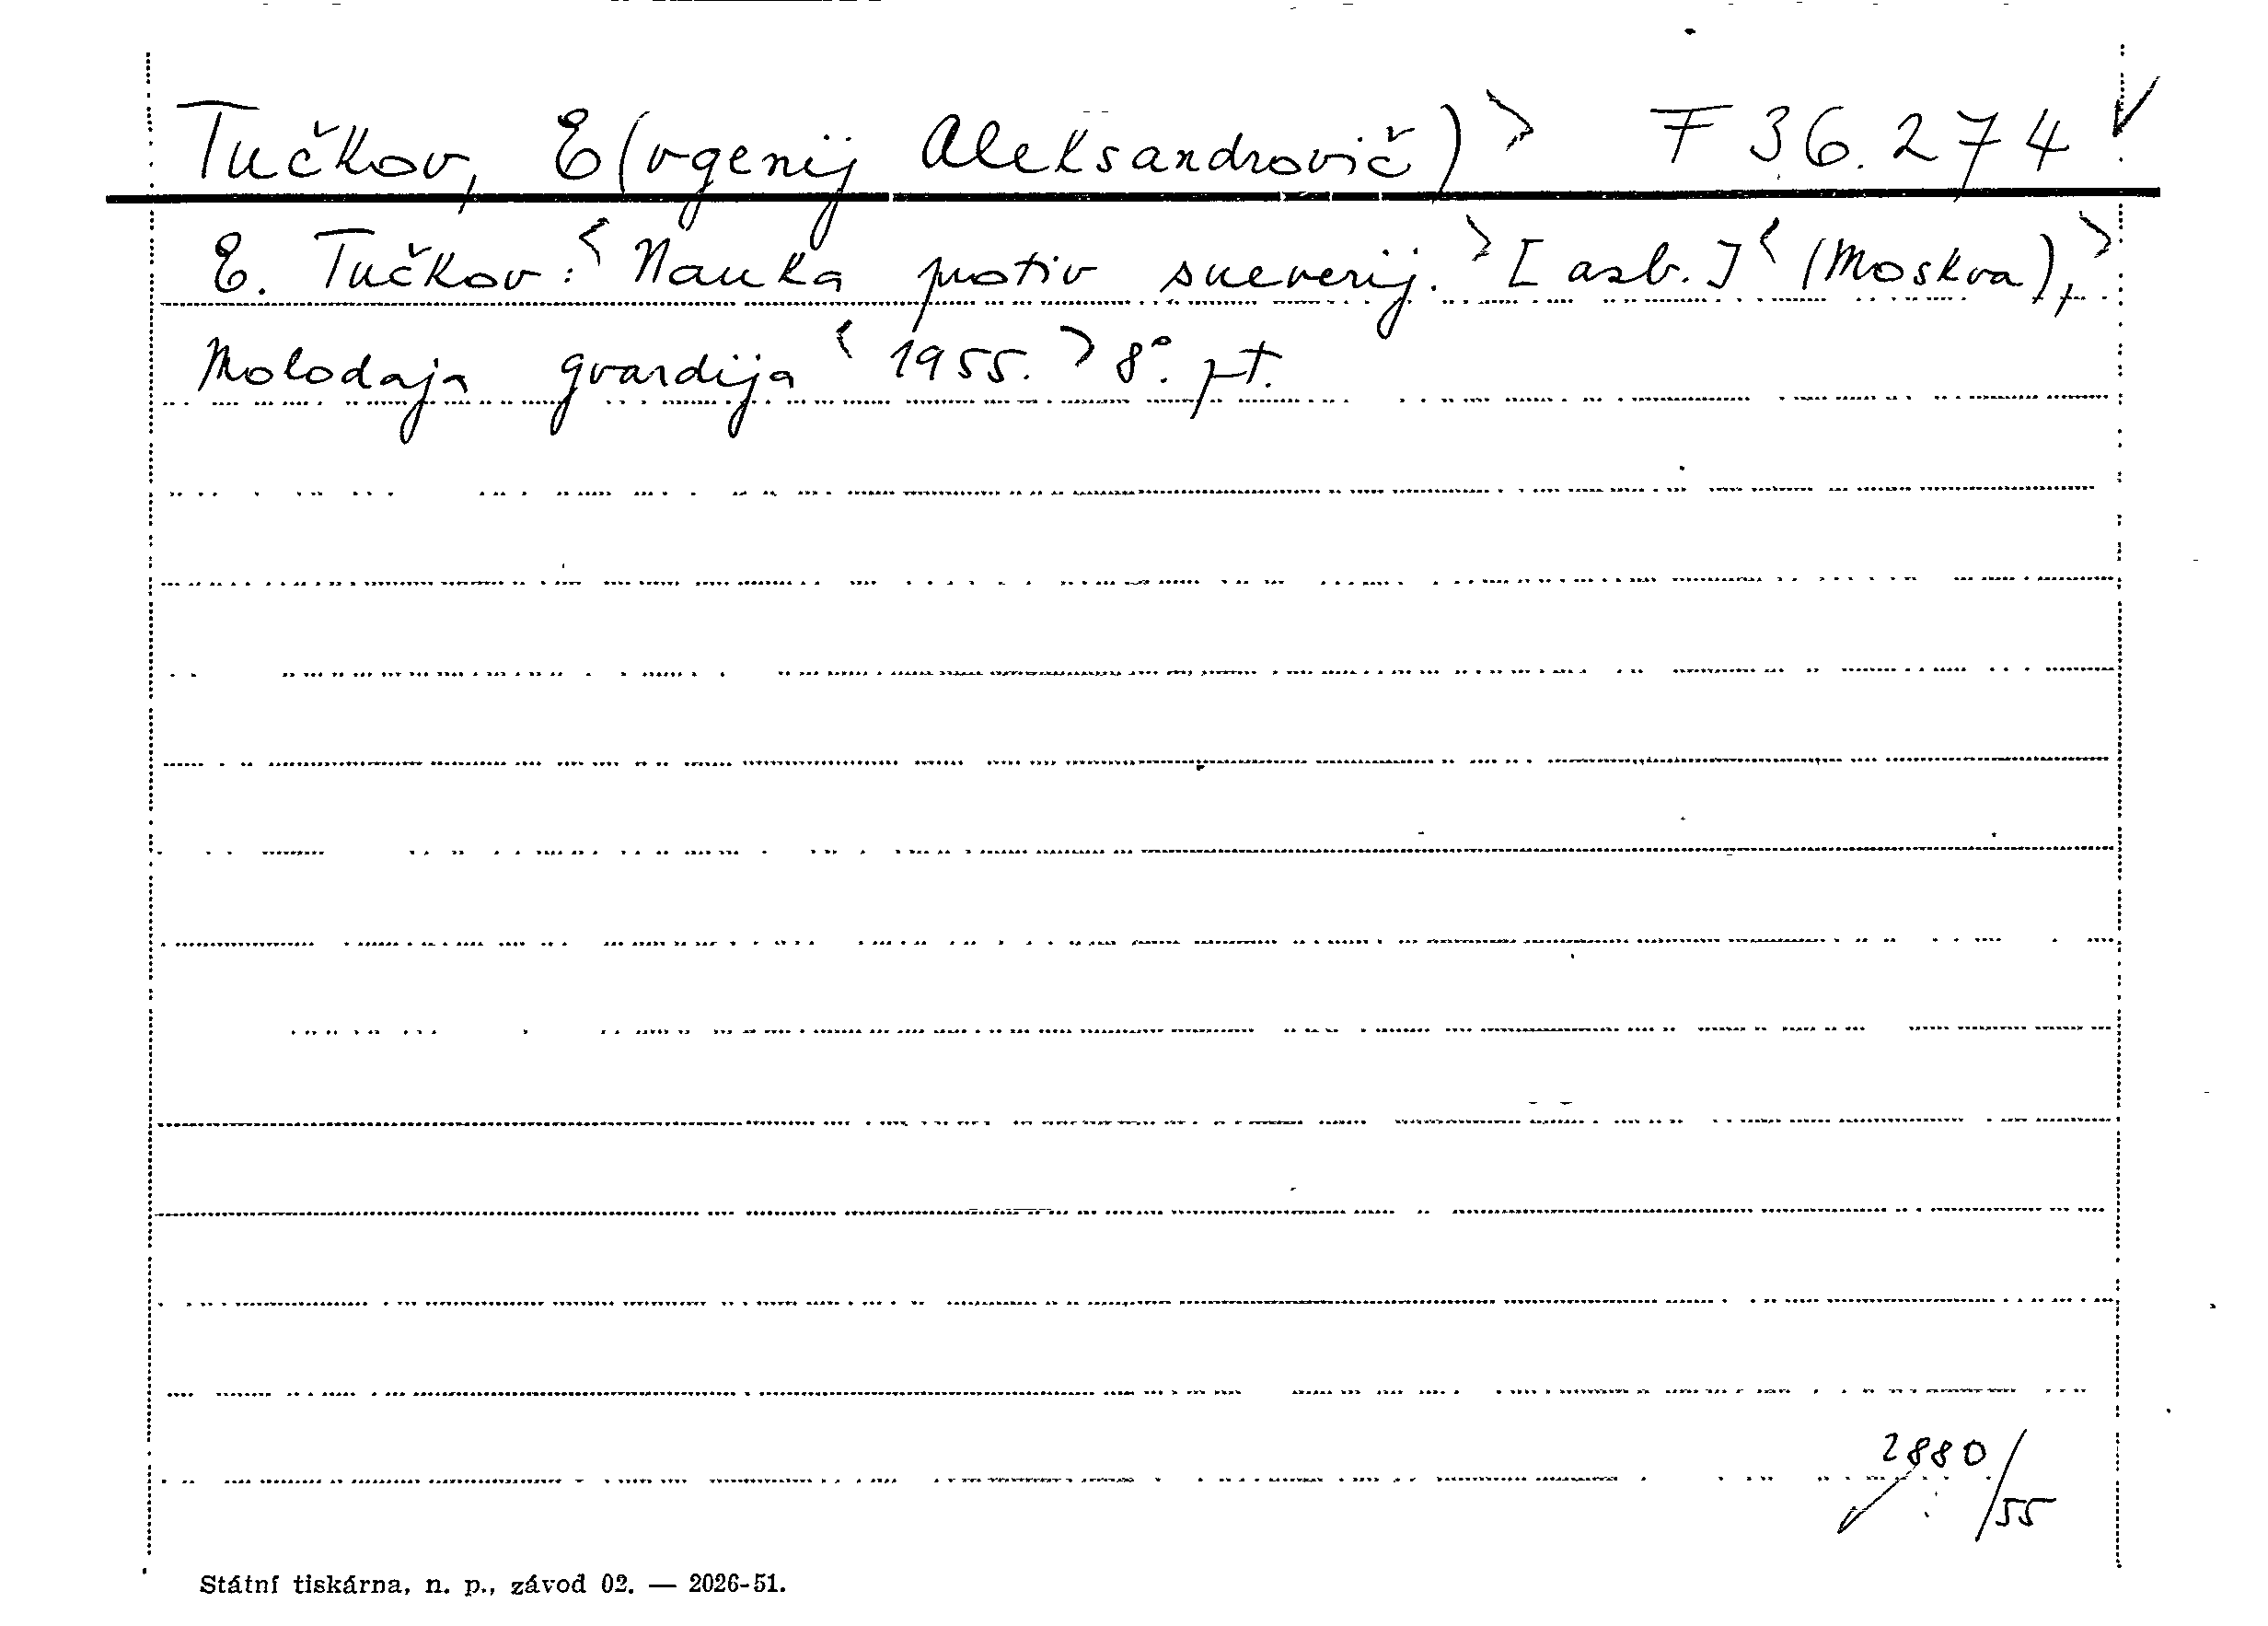 Tučkov, E(vgenij Aleksandrovič) > F 36.274
E. Tučkov: < Nauka protiv sueverij. > [azb.] < (Moskva), >
Molodaja gvardija < 1955. > 8°. pt.
2880/55
Státní tiskárna, n. p., závod 02. — 2026-51.